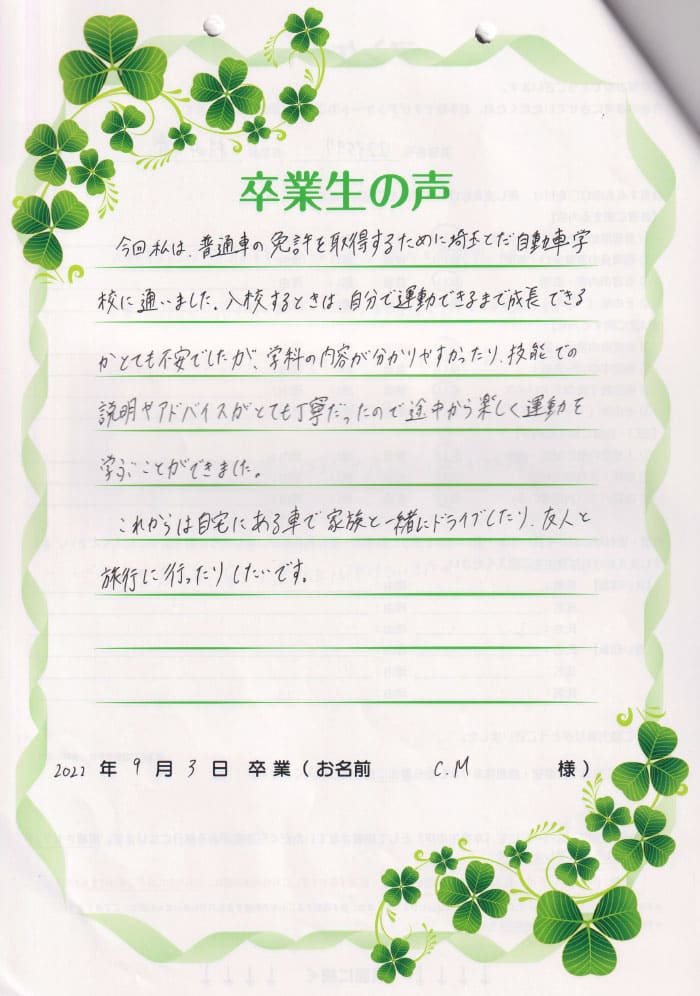 卒業生の声
今回私は、普通車の免許を取得するために埼玉とだ自動車学
校に通いました。入校するときは、自分で運動できるまで成長できる
かとても不安でしたが、学科の内容が分かりやすかったり、技能での
説明やアドバイスがとても丁寧だったので途中から楽しく運動を
学ぶことができました。
これからは自宅にある車で家族と一緒にドライブしたり、友人と
旅行に行ったりしたいです。
2022年9月3日 卒業(お名前 C.M 様)